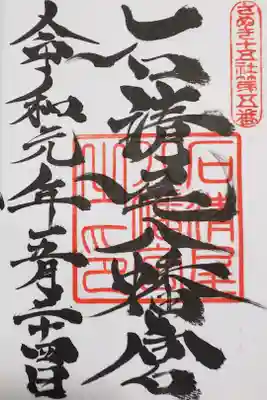 さぬき十五社第五番
石清尾八幡宮
石清尾八幡宮之印
令和元年五月二十四日